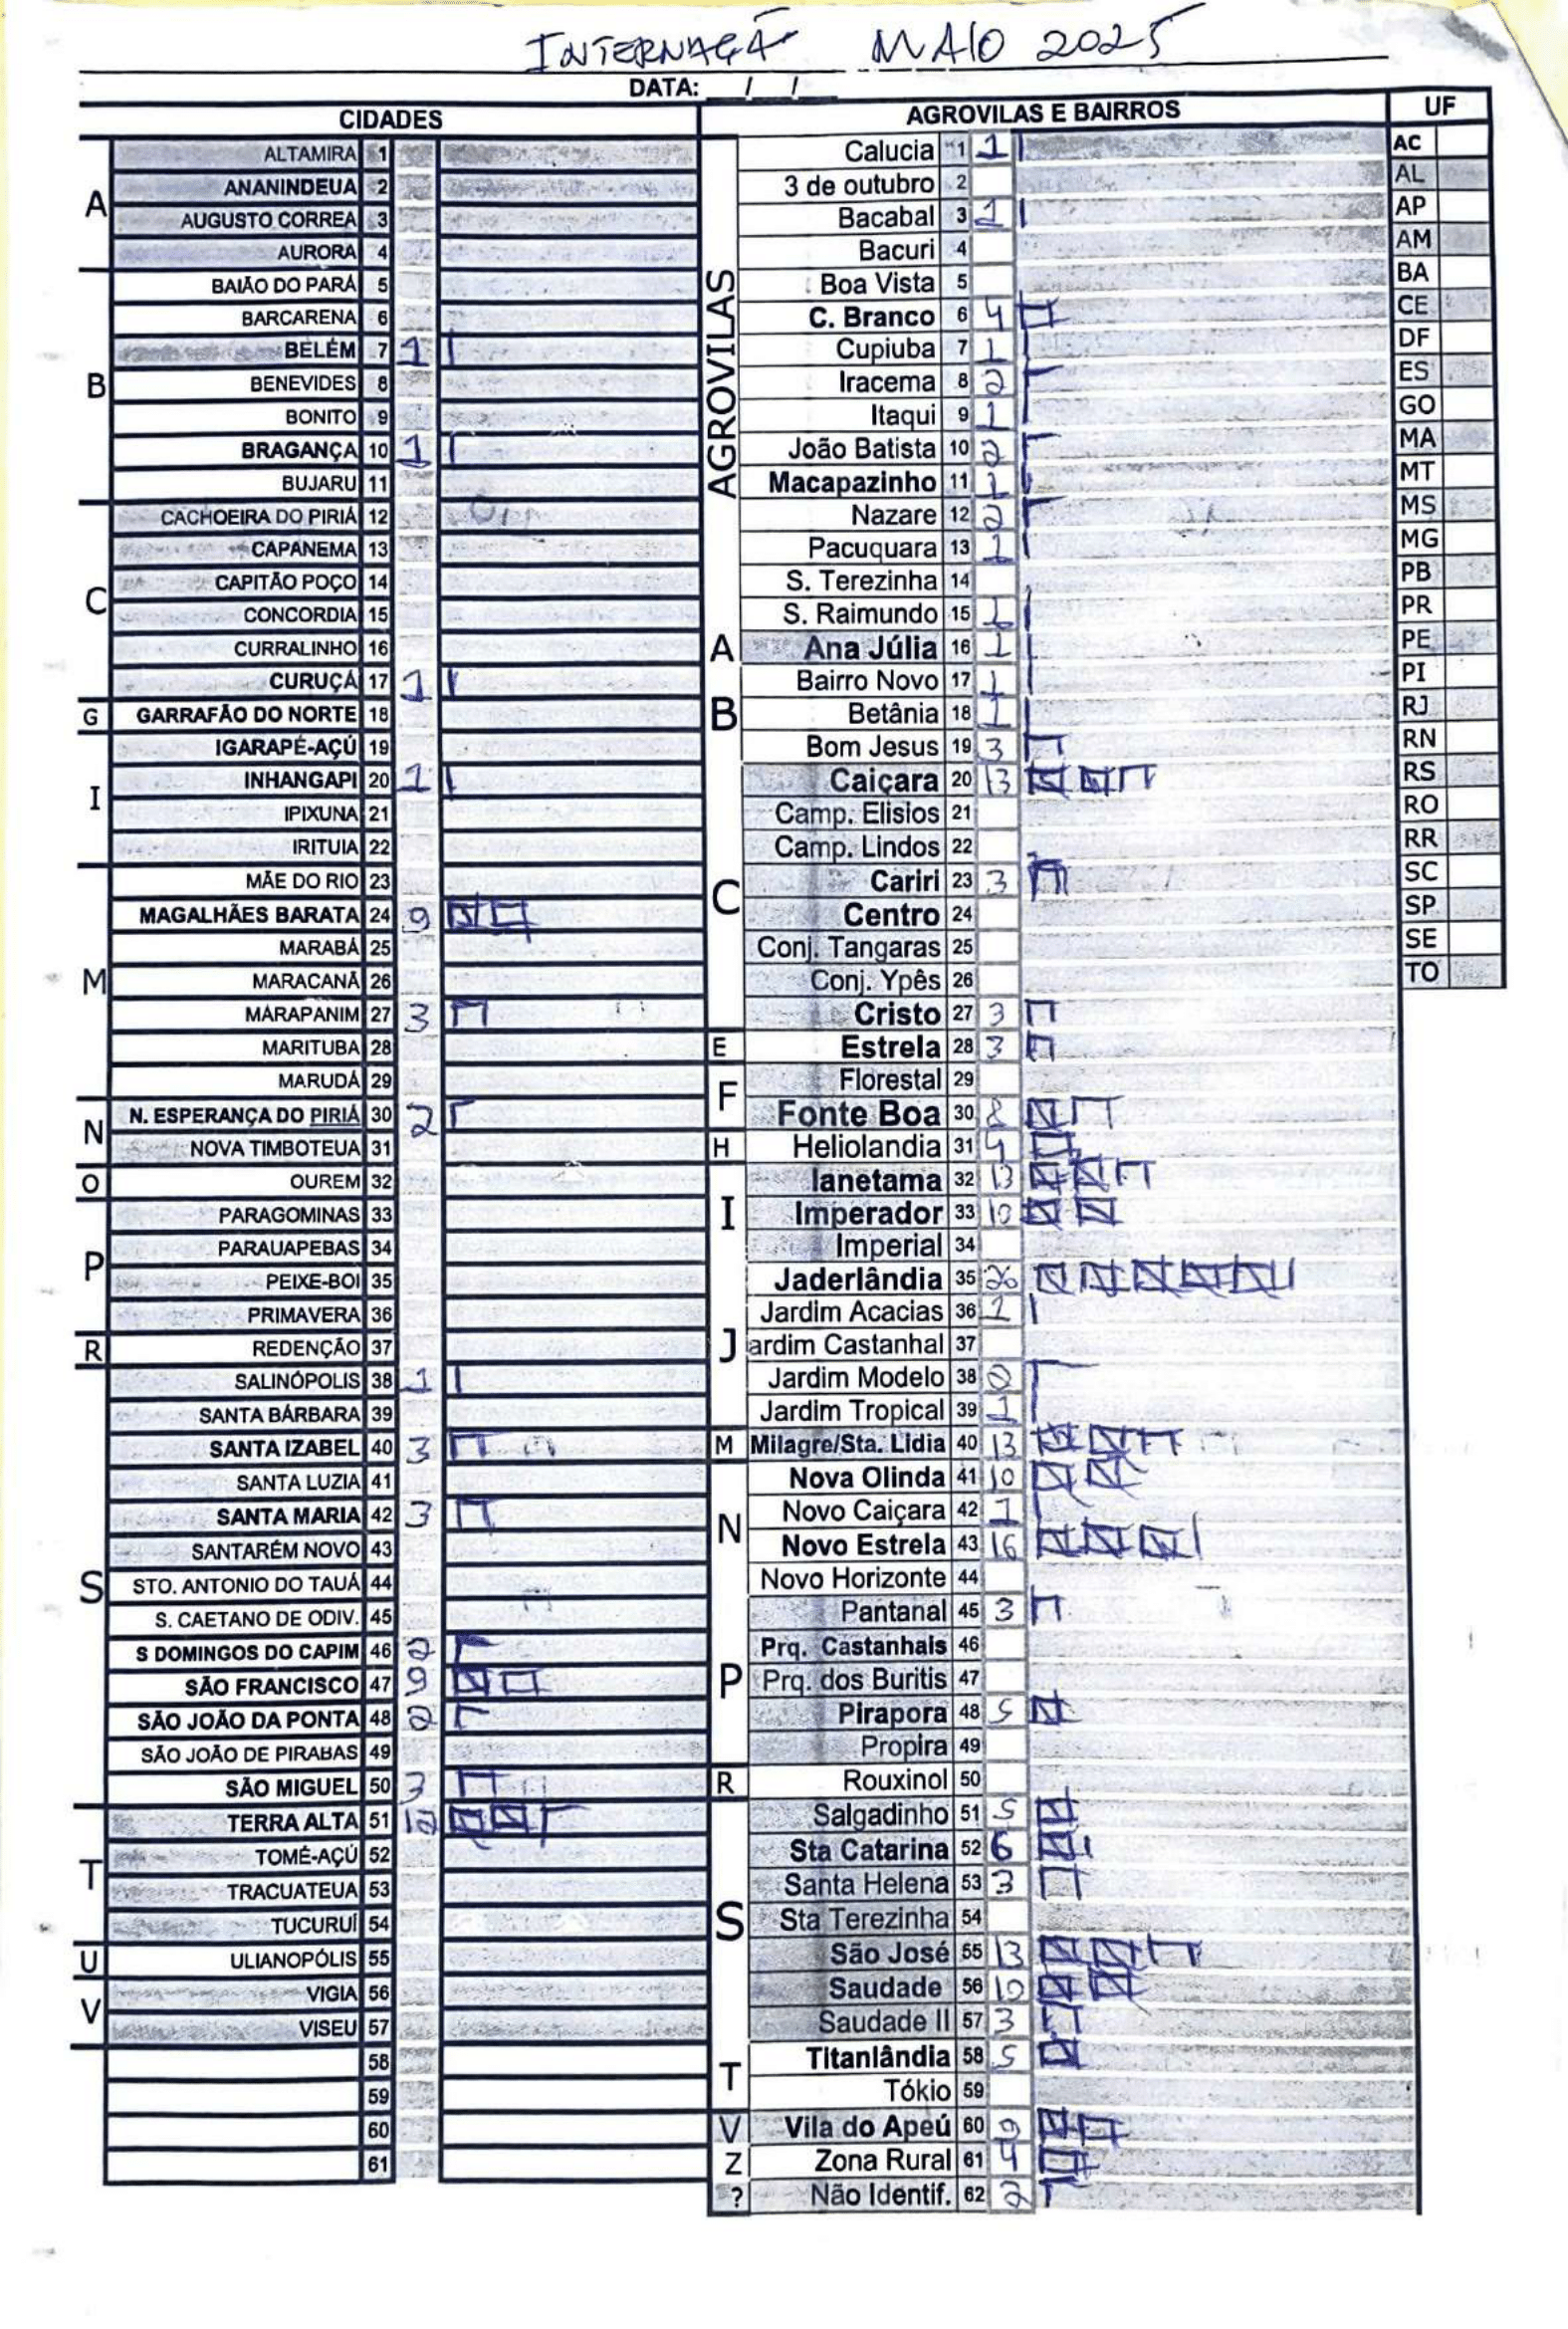 INTERNAÇÃ MAIO 2025
DATA: / /
CIDADES
A
ALTAMIRA 1
ANANINDEUA 2
AUGUSTO CORREA 3
AURORA 4
B
BAIÃO DO PARÁ 5
BARCARENA 6
BELÉM 7 1
BENEVIDES 8
BONITO 9
BRAGANÇA 10 1
BUJARU 11
C
CACHOEIRA DO PIRIÁ 12
CAPANEMA 13
CAPITÃO POÇO 14
CONCORDIA 15
CURRALINHO 16
CURUÇÁ 17 1
G
GARRAFÃO DO NORTE 18
I
IGARAPÉ-AÇÚ 19
INHANGAPI 20 1
IPIXUNA 21
IRITUIA 22
M
MÃE DO RIO 23
MAGALHÃES BARATA 24 9
MARABÁ 25
MARACANÃ 26
MARAPANIM 27 3
MARITUBA 28
MARUDÁ 29
N
N. ESPERANÇA DO PIRIÁ 30 2
NOVA TIMBOTEUA 31
O
OUREM 32
P
PARAGOMINAS 33
PARAUAPEBAS 34
PEIXE-BOI 35
PRIMAVERA 36
R
REDENÇÃO 37
S
SALINÓPOLIS 38 1
SANTA BÁRBARA 39
SANTA IZABEL 40 3
SANTA LUZIA 41
SANTA MARIA 42 3
SANTARÉM NOVO 43
STO. ANTONIO DO TAUÁ 44
S. CAETANO DE ODIV. 45
S DOMINGOS DO CAPIM 46 2
SÃO FRANCISCO 47 9
SÃO JOÃO DA PONTA 48 2
SÃO JOÃO DE PIRABAS 49
SÃO MIGUEL 50 3
T
TERRA ALTA 51 12
TOMÉ-AÇÚ 52
TRACUATEUA 53
TUCURUÍ 54
U
ULIANOPÓLIS 55
V
VIGIA 56
VISEU 57
58
59
60
61
AGROVILAS E BAIRROS
AGROVILAS
Calucia 1 1
3 de outubro 2
Bacabal 3 1
Bacuri 4
Boa Vista 5
C. Branco 6 4
Cupiuba 7 1
Iracema 8 2
Itaqui 9 1
João Batista 10 2
Macapazinho 11 1
Nazare 12 2
Pacuquara 13 1
S. Terezinha 14
S. Raimundo 15 1
A
Ana Júlia 16 1
B
Bairro Novo 17 1
Betânia 18 1
Bom Jesus 19 3
C
Caiçara 20 13
Camp. Elisios 21
Camp. Lindos 22
Cariri 23 3
Centro 24
Conj. Tangaras 25
Conj. Ypês 26
Cristo 27 3
E
Estrela 28 3
F
Florestal 29
Fonte Boa 30 8
H
Heliolandia 31 4
I
Ianetama 32 13
Imperador 33 10
Imperial 34
J
Jaderlândia 35 26
Jardim Acacias 36 1
ardim Castanhal 37
Jardim Modelo 38
Jardim Tropical 39 1
M
Milagre/Sta. Lidia 40 13
N
Nova Olinda 41 10
Novo Caiçara 42 1
Novo Estrela 43 16
Novo Horizonte 44
P
Pantanal 45 3
Prq. Castanhais 46
Prq. dos Buritis 47
Pirapora 48 5
Propira 49
R
Rouxinol 50
S
Salgadinho 51 5
Sta Catarina 52 6
Santa Helena 53 3
Sta Terezinha 54
São José 55 13
Saudade 56 10
Saudade II 57 3
T
Titanlândia 58 5
Tókio 59
V
Vila do Apeú 60 9
Z
Zona Rural 61 4
?
Não Identif. 62 2
UF
AC
AL
AP
AM
BA
CE
DF
ES
GO
MA
MT
MS
MG
PB
PR
PE
PI
RJ
RN
RS
RO
RR
SC
SP
SE
TO